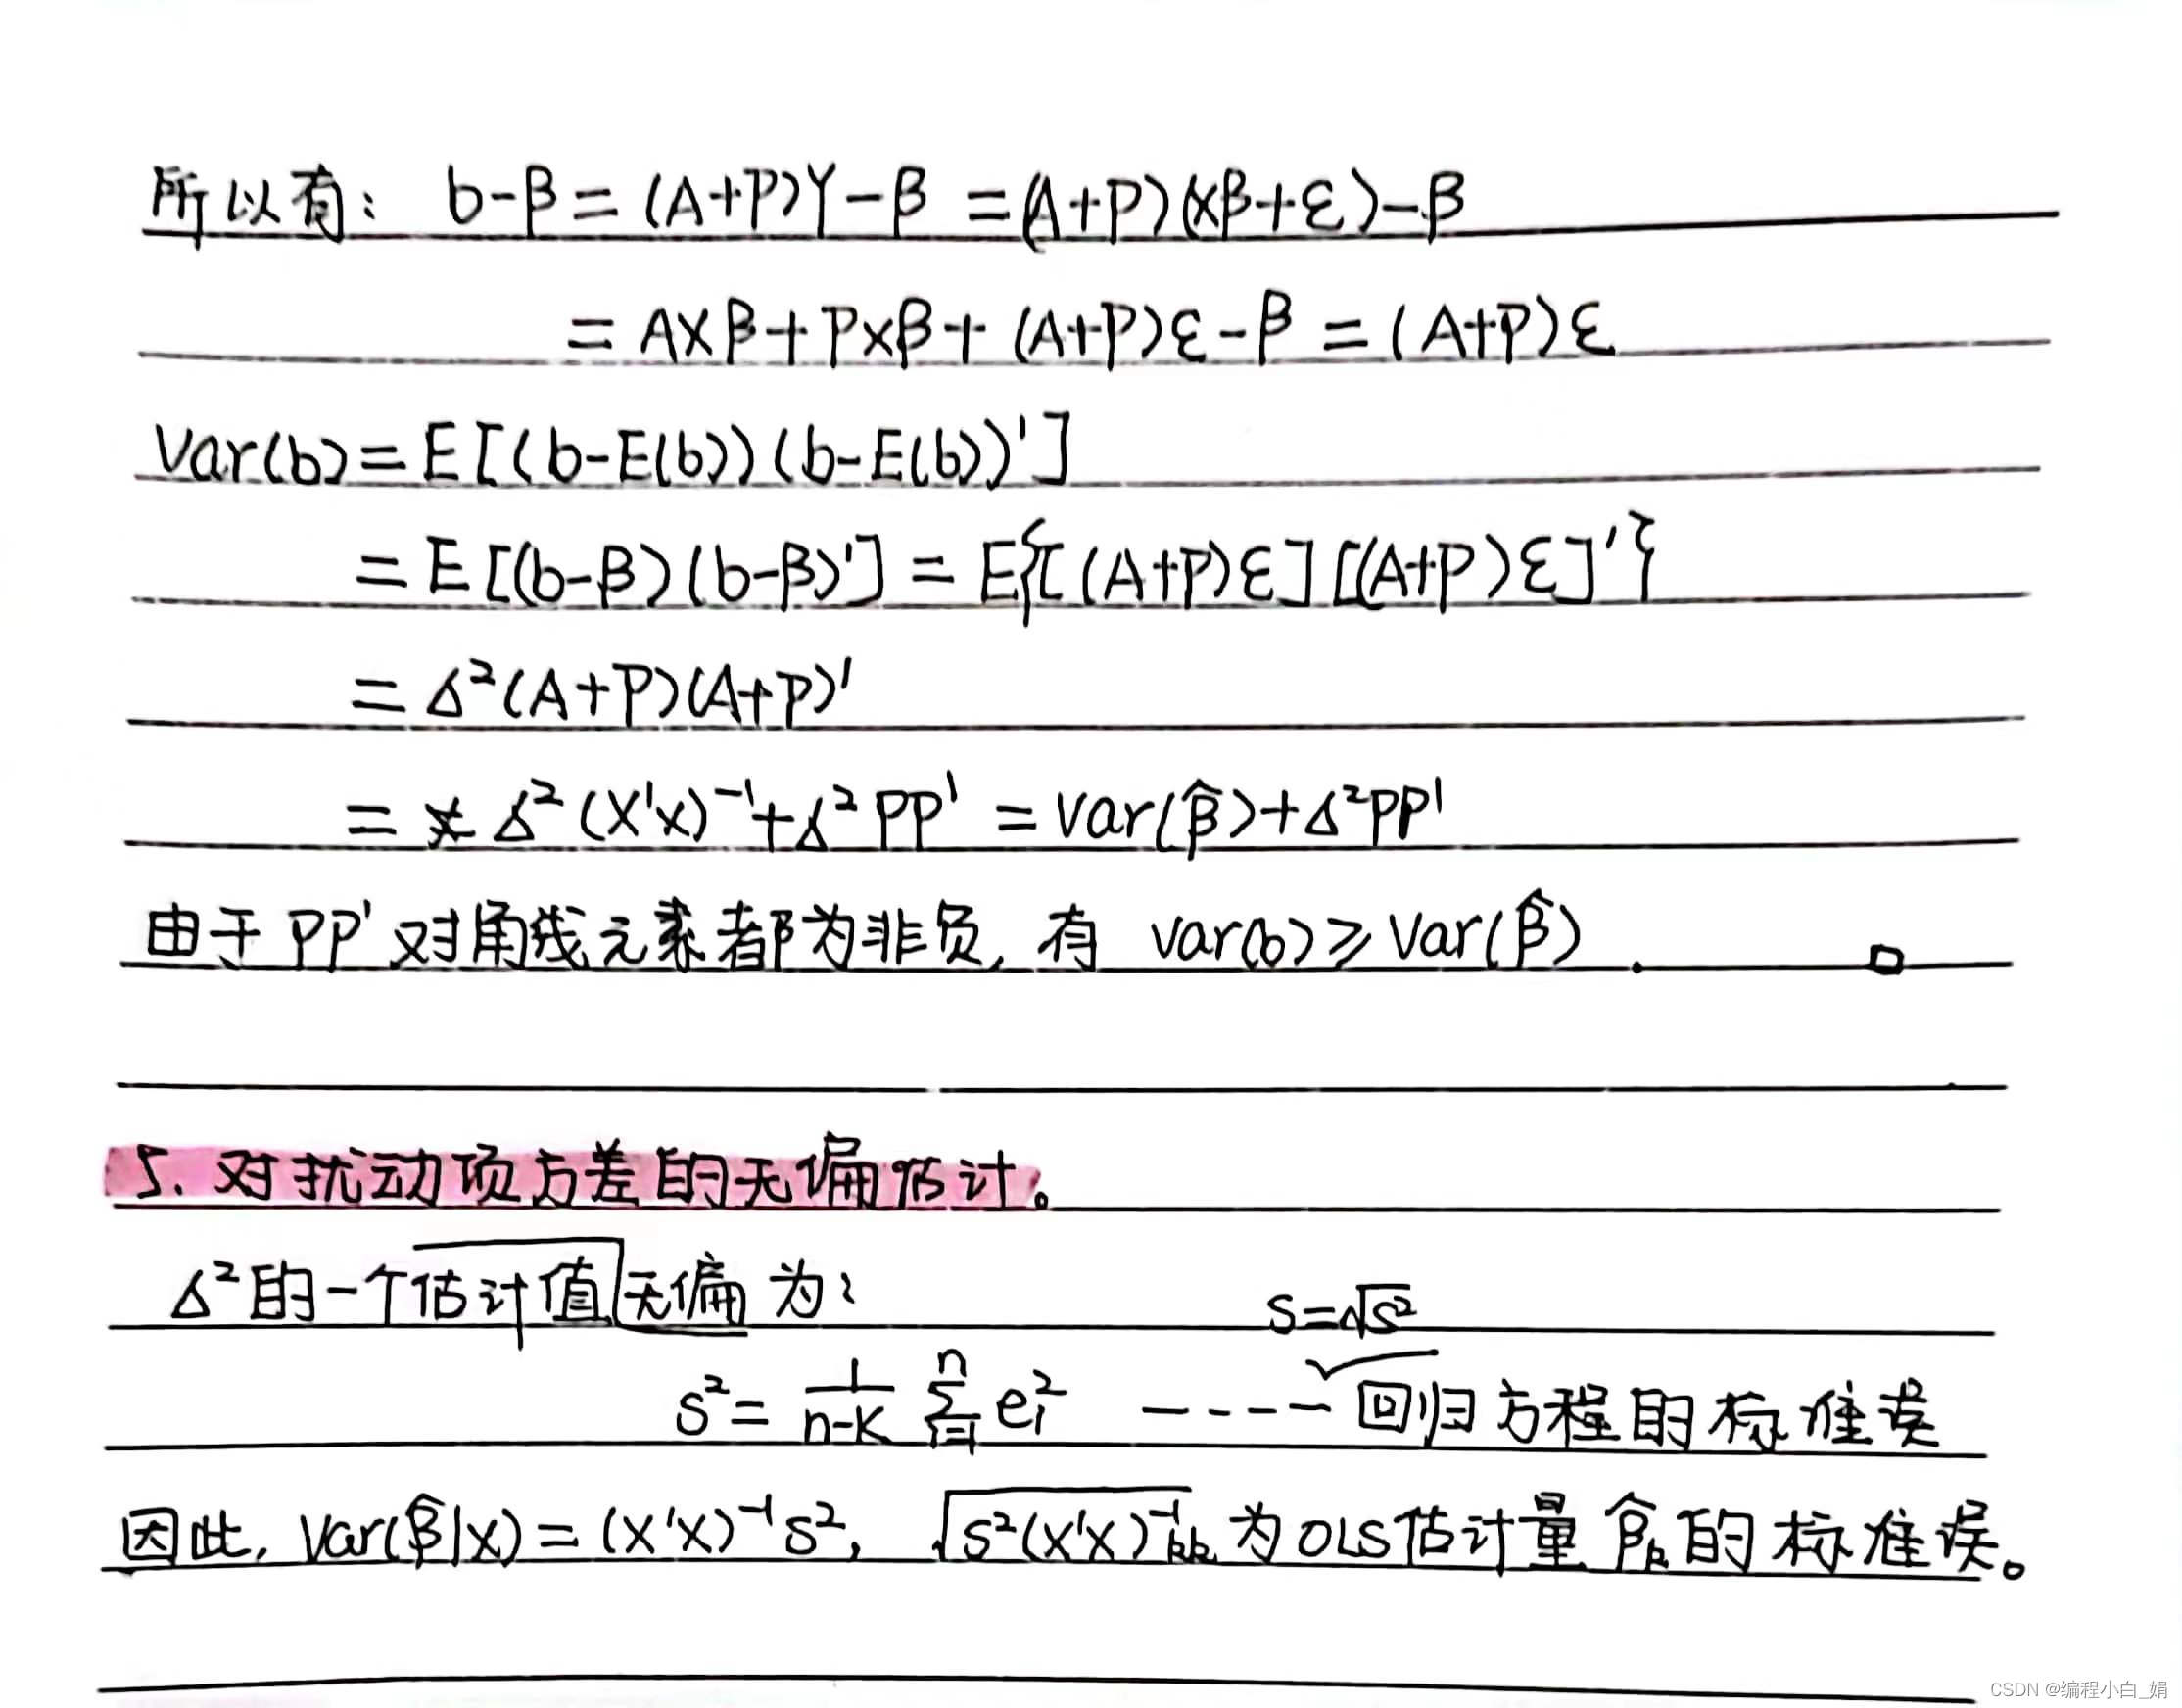 所以有: b-β=(A+P)Y-β =(A+P)(Xβ+ε)-β
=AXβ+PXβ+(A+P)ε-β=(A+P)ε
Var(b)=E[(b-E(b))(b-E(b))']
=E[(b-β)(b-β)']=E{[(A+P)ε][(A+P)ε]'}
=δ²(A+P)(A+P)'
=δ²(X'X)⁻¹+δ²PP'=Var(β̂)+δ²PP'
由于PP'对角线元素都为非负,有 Var(b)≥Var(β̂). □
5.对扰动项方差的无偏估计。
δ²的一个估计值无偏为:
s=√s²
s²=1/(n-K) Σⁿᵢ₌₁ eᵢ² ---- 回归方程的标准误
因此,Var(β̂|X)=(X'X)⁻¹s²,√(s²(X'X)⁻¹ₖₖ)为OLS估计量β̂ₖ的标准误。
CSDN @编程小白_娟